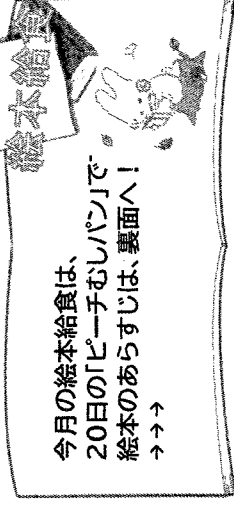 絵本給食
今月の絵本給食は、
20日の「ピーチむしパン」で
絵本のあらすじは、裏面へ！
→→→